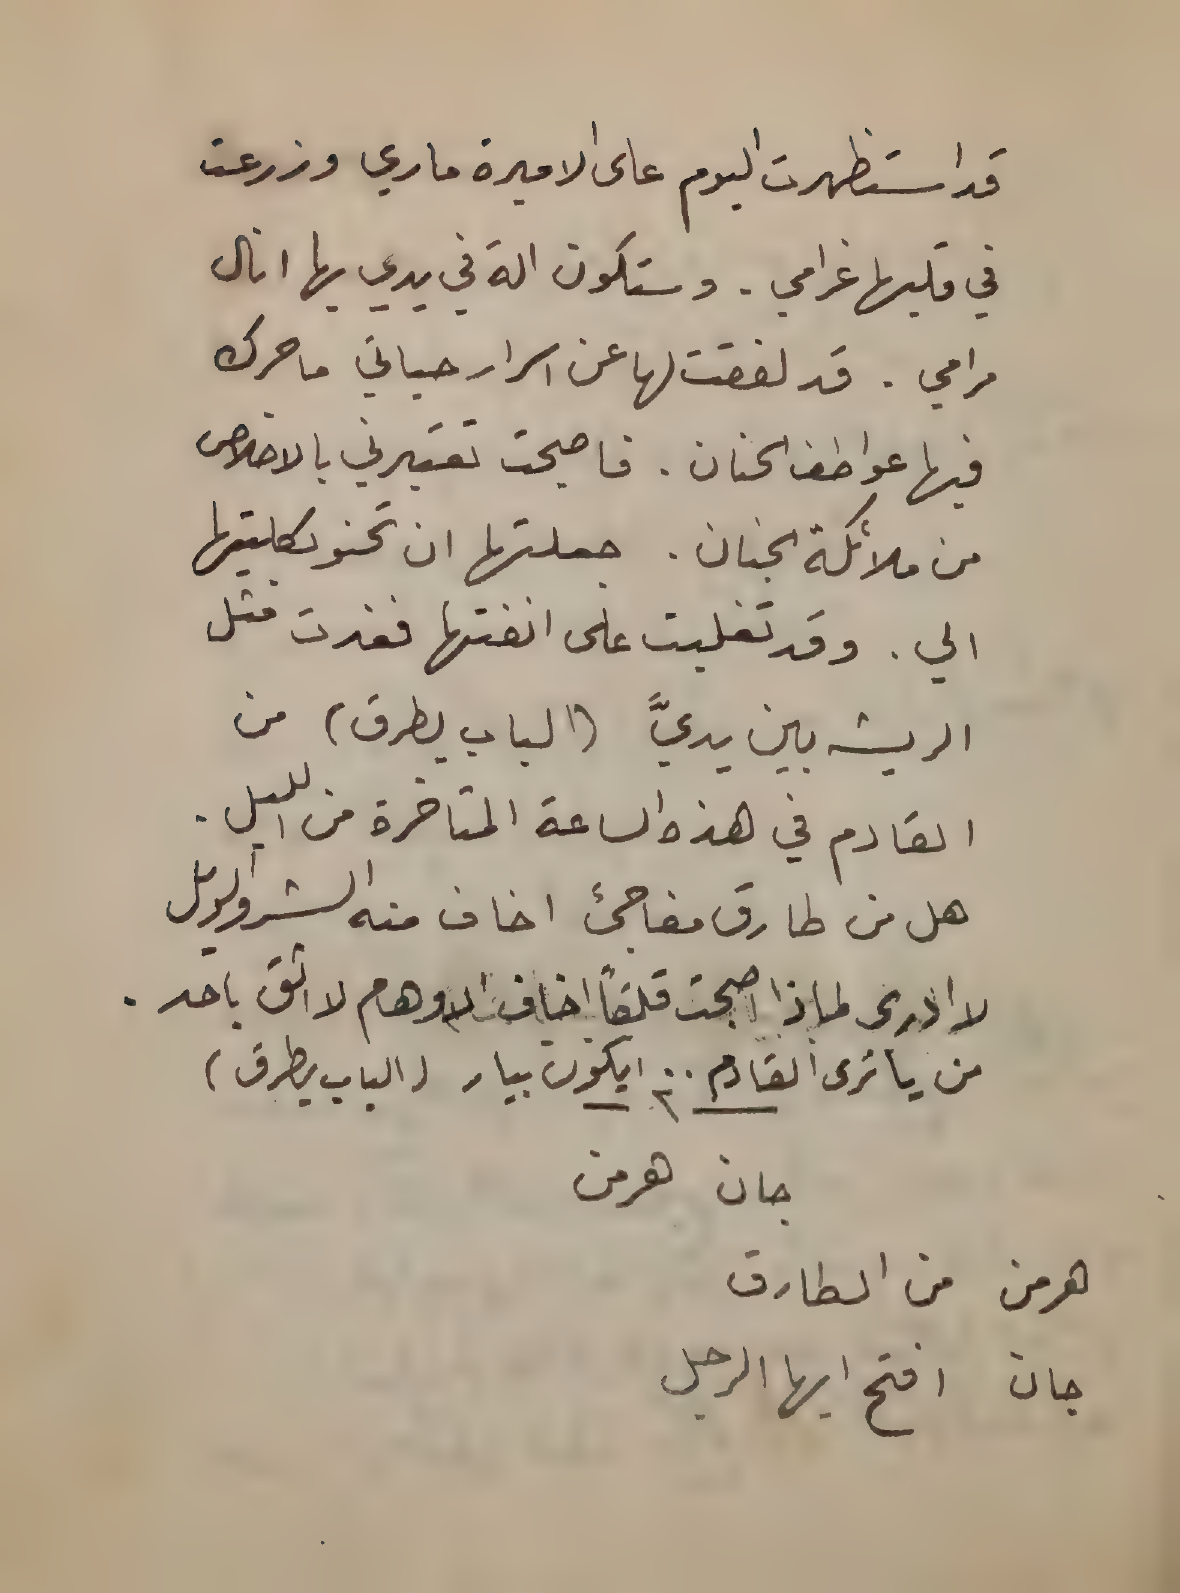 قد استظهرت اليوم على الاميرة ماري وزرعت
في قلبها غرامي . وستكون الة في يدي بها انال
مرامي . قد لفقت لها عن اسرار حياتي ما حرك
فيها عواطف الحنان . فاصبحت تعتبرني بالاخلاص
من ملائكة الجنان . جعلتها ان تحنو بكليتها
الي . وقد تغلبت على انفتها فغدت مثل
الريشه بين يديَّ (الباب يطرق) من
القادم في هذه الساعة المتاخرة من الليل .
هل من طارق مفاجئ اخاف منه الشر والويل
لا ادري لماذا اصبحت قلقاً اخاف الاوهام لا اثق باحد .
من يا ترى القادم .. ايكون بيار (الباب يطرق)
جان هرمن
هرمن من الطارق
جان افتح ايها الرجل